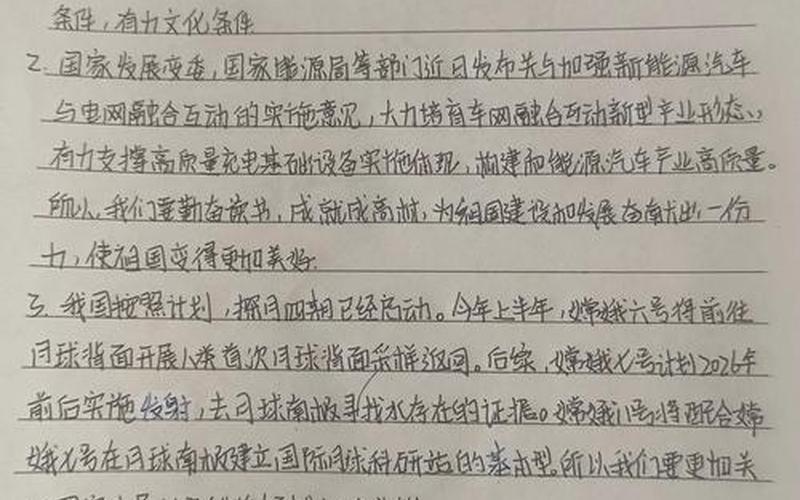 条件，有力文化条件
2. 国家发展变委，国家能源局等部门近日发布关与加强新能源汽车
与电网融合互动的实施意见，大力培育车网融合互动新型产业形态，
有力支撑高质量充电基础设备实施体现，构建和能源汽车产业高质量。
所以，我们要勤奋读书，成就成高材，为祖国建设和发展奋献出一份
力，使祖国变得更加美好.
3. 我国按照计划，探月四期已经启动。今年上半年，嫦娥六号将前往
月球背面开展人类首次月球背面采样返回。后续，嫦娥七号计划2026年
前后实施发射，去月球南极寻找水存在的证据。嫦娥八号将配合嫦
娥七号在月球南极建立国际月球科研站的基本型。所以我们要更加关